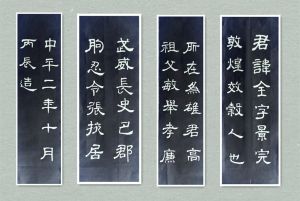 君諱全字景完
敦煌效穀人也
所在為雄君高
祖父敏舉孝廉
武威長史巴郡
朐忍令張掖居
中平二年十月
丙辰造